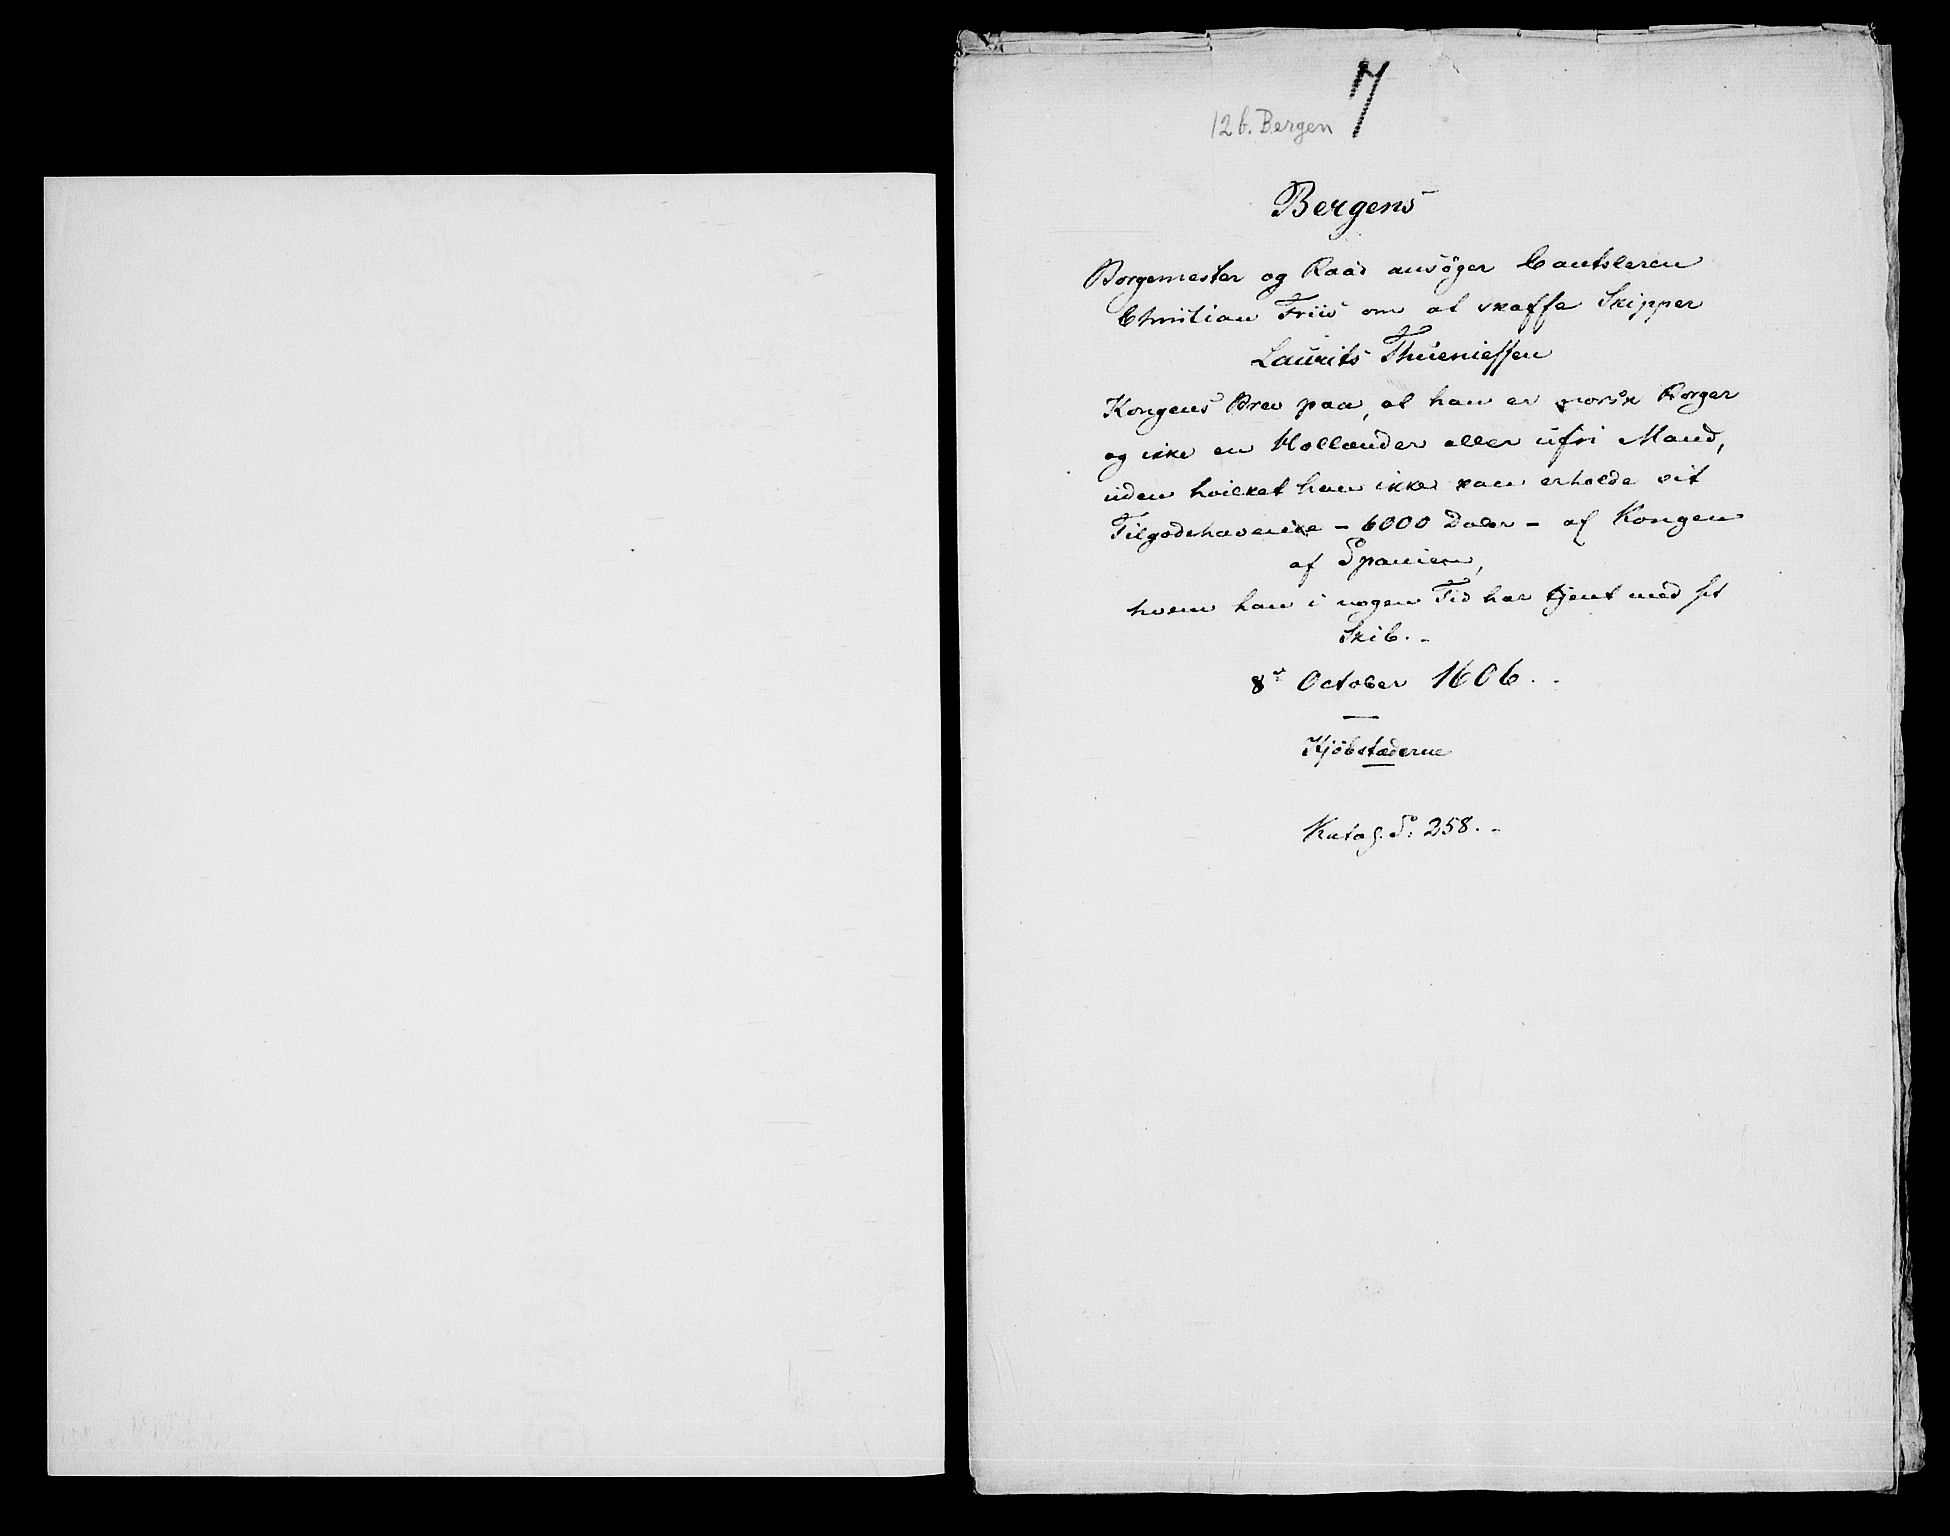 7
12 b. Bergen
Bergens
Borgemester og Raad ansøger Cantsleren
Christian Friis om at skaffe Skipper
Laurits Thuenissen
Kongens Brev paa, at han er norsk Borger
og ikke en Hollænder eller ufri Mand,
uden hvilket han ikke kan erholde sit
Tilgodehavende - 6000 Daler - af Kongen
af Spanien,
hvem han i nogen Tid har tjent med sit
Skib. -
8de October 1606. -
Kjøbstæderne
Katal. S. 258. -